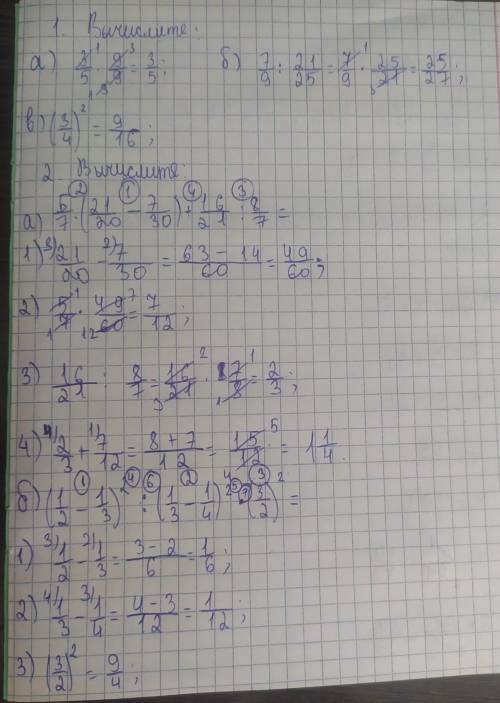 1. Вычислите:
а) 3/5 · 9/9 = 3/5; б) 7/9 : 21/25 = 7/9 · 25/21 = 25/27;
в) (3/4)² = 9/16;
2. Вычислите:
а) 5/7 · (21/20 - 7/30) + 16/21 : 8/7 =
1) 21/20 - 7/30 = 63 - 14/60 = 49/60;
2) 5/7 · 49/60 = 7/12;
3) 16/21 : 8/7 = 16/21 · 7/8 = 2/3;
4) 2/3 + 7/12 = 8 + 7/12 = 15/12 = 1 1/4.
б) (1/2 - 1/3)² : (1/3 - 1/4)² · (3/2)² =
1) 1/2 - 1/3 = 3 - 2/6 = 1/6;
2) 1/3 - 1/4 = 4 - 3/12 = 1/12;
3) (3/2)² = 9/4;